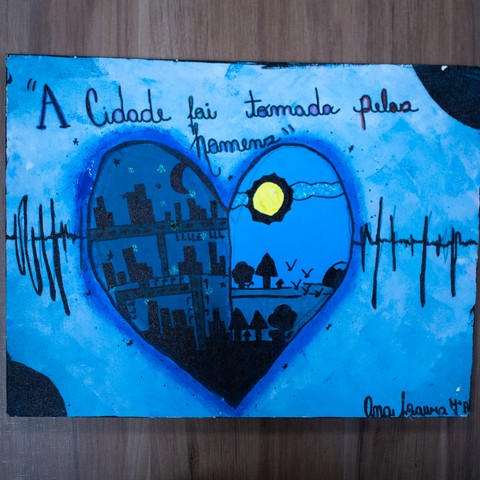 "A Cidade foi tomada pelos
homens"
Ana Laura 7º A